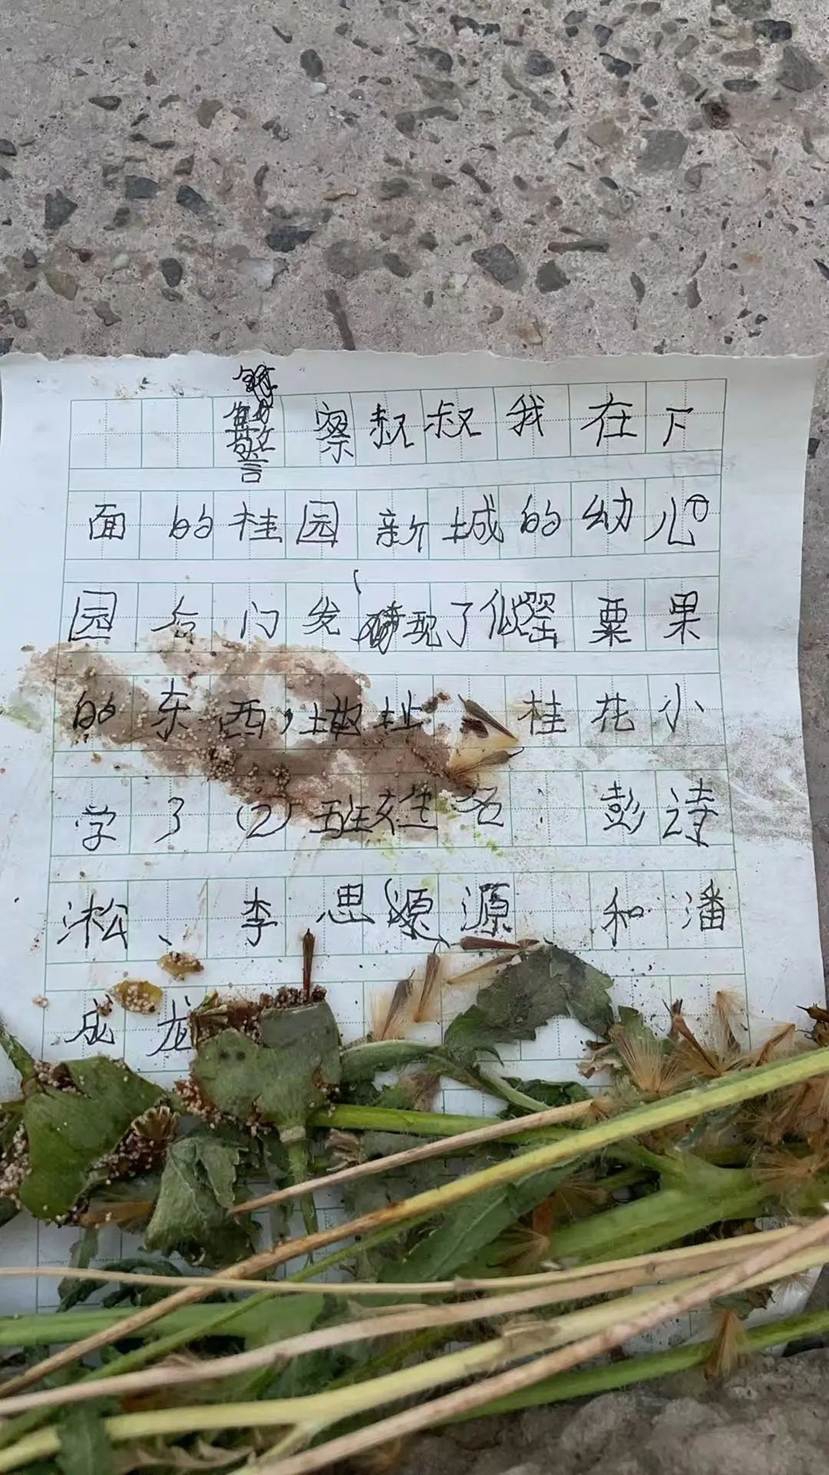 警察叔叔我在下
面的桂园新城的幼儿
园后门发现了似罂粟果
的东西，地址 桂花小
学3(2)班姓名：彭诗
淞、李思源 和潘
成龙